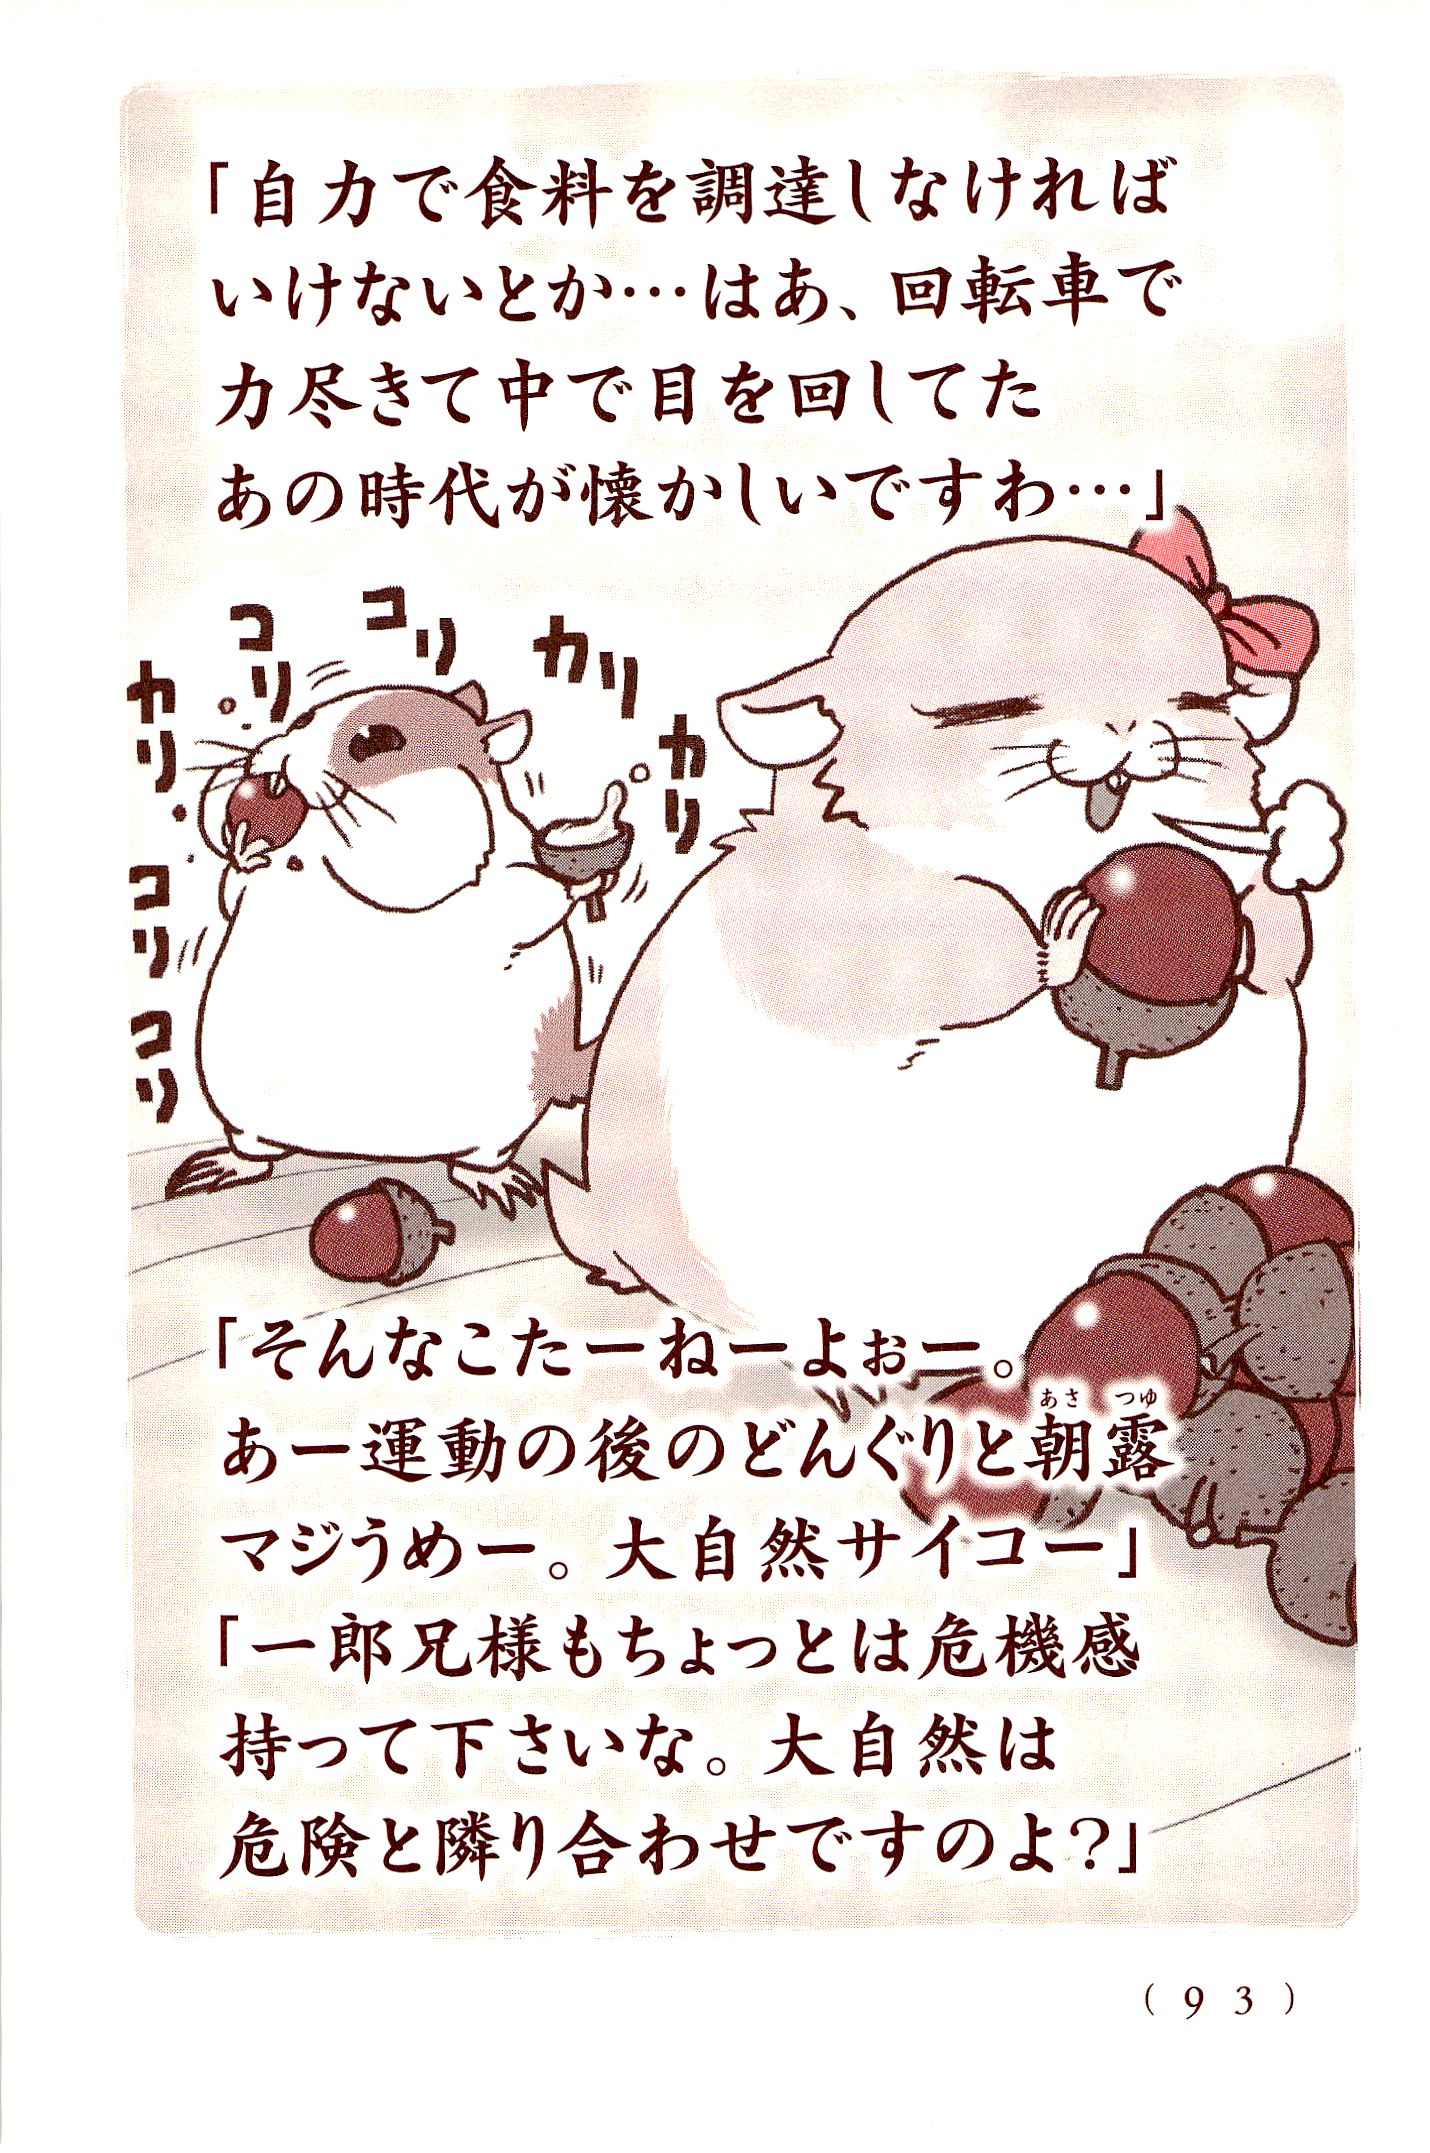 「自力で食料を調達しなければ
いけないとか…はあ、回転車で
力尽きて中で目を回してた
あの時代が懐かしいですわ…」
コリ
コリ
カリ
カリ
カリ
コリ
コリ
「そんなこたーねーよぉー。
あー運動の後のどんぐりと朝露
あさ つゆ
マジうめー。大自然サイコー」
「一郎兄様もちょっとは危機感
持って下さいな。大自然は
危険と隣り合わせですのよ?」
(93)